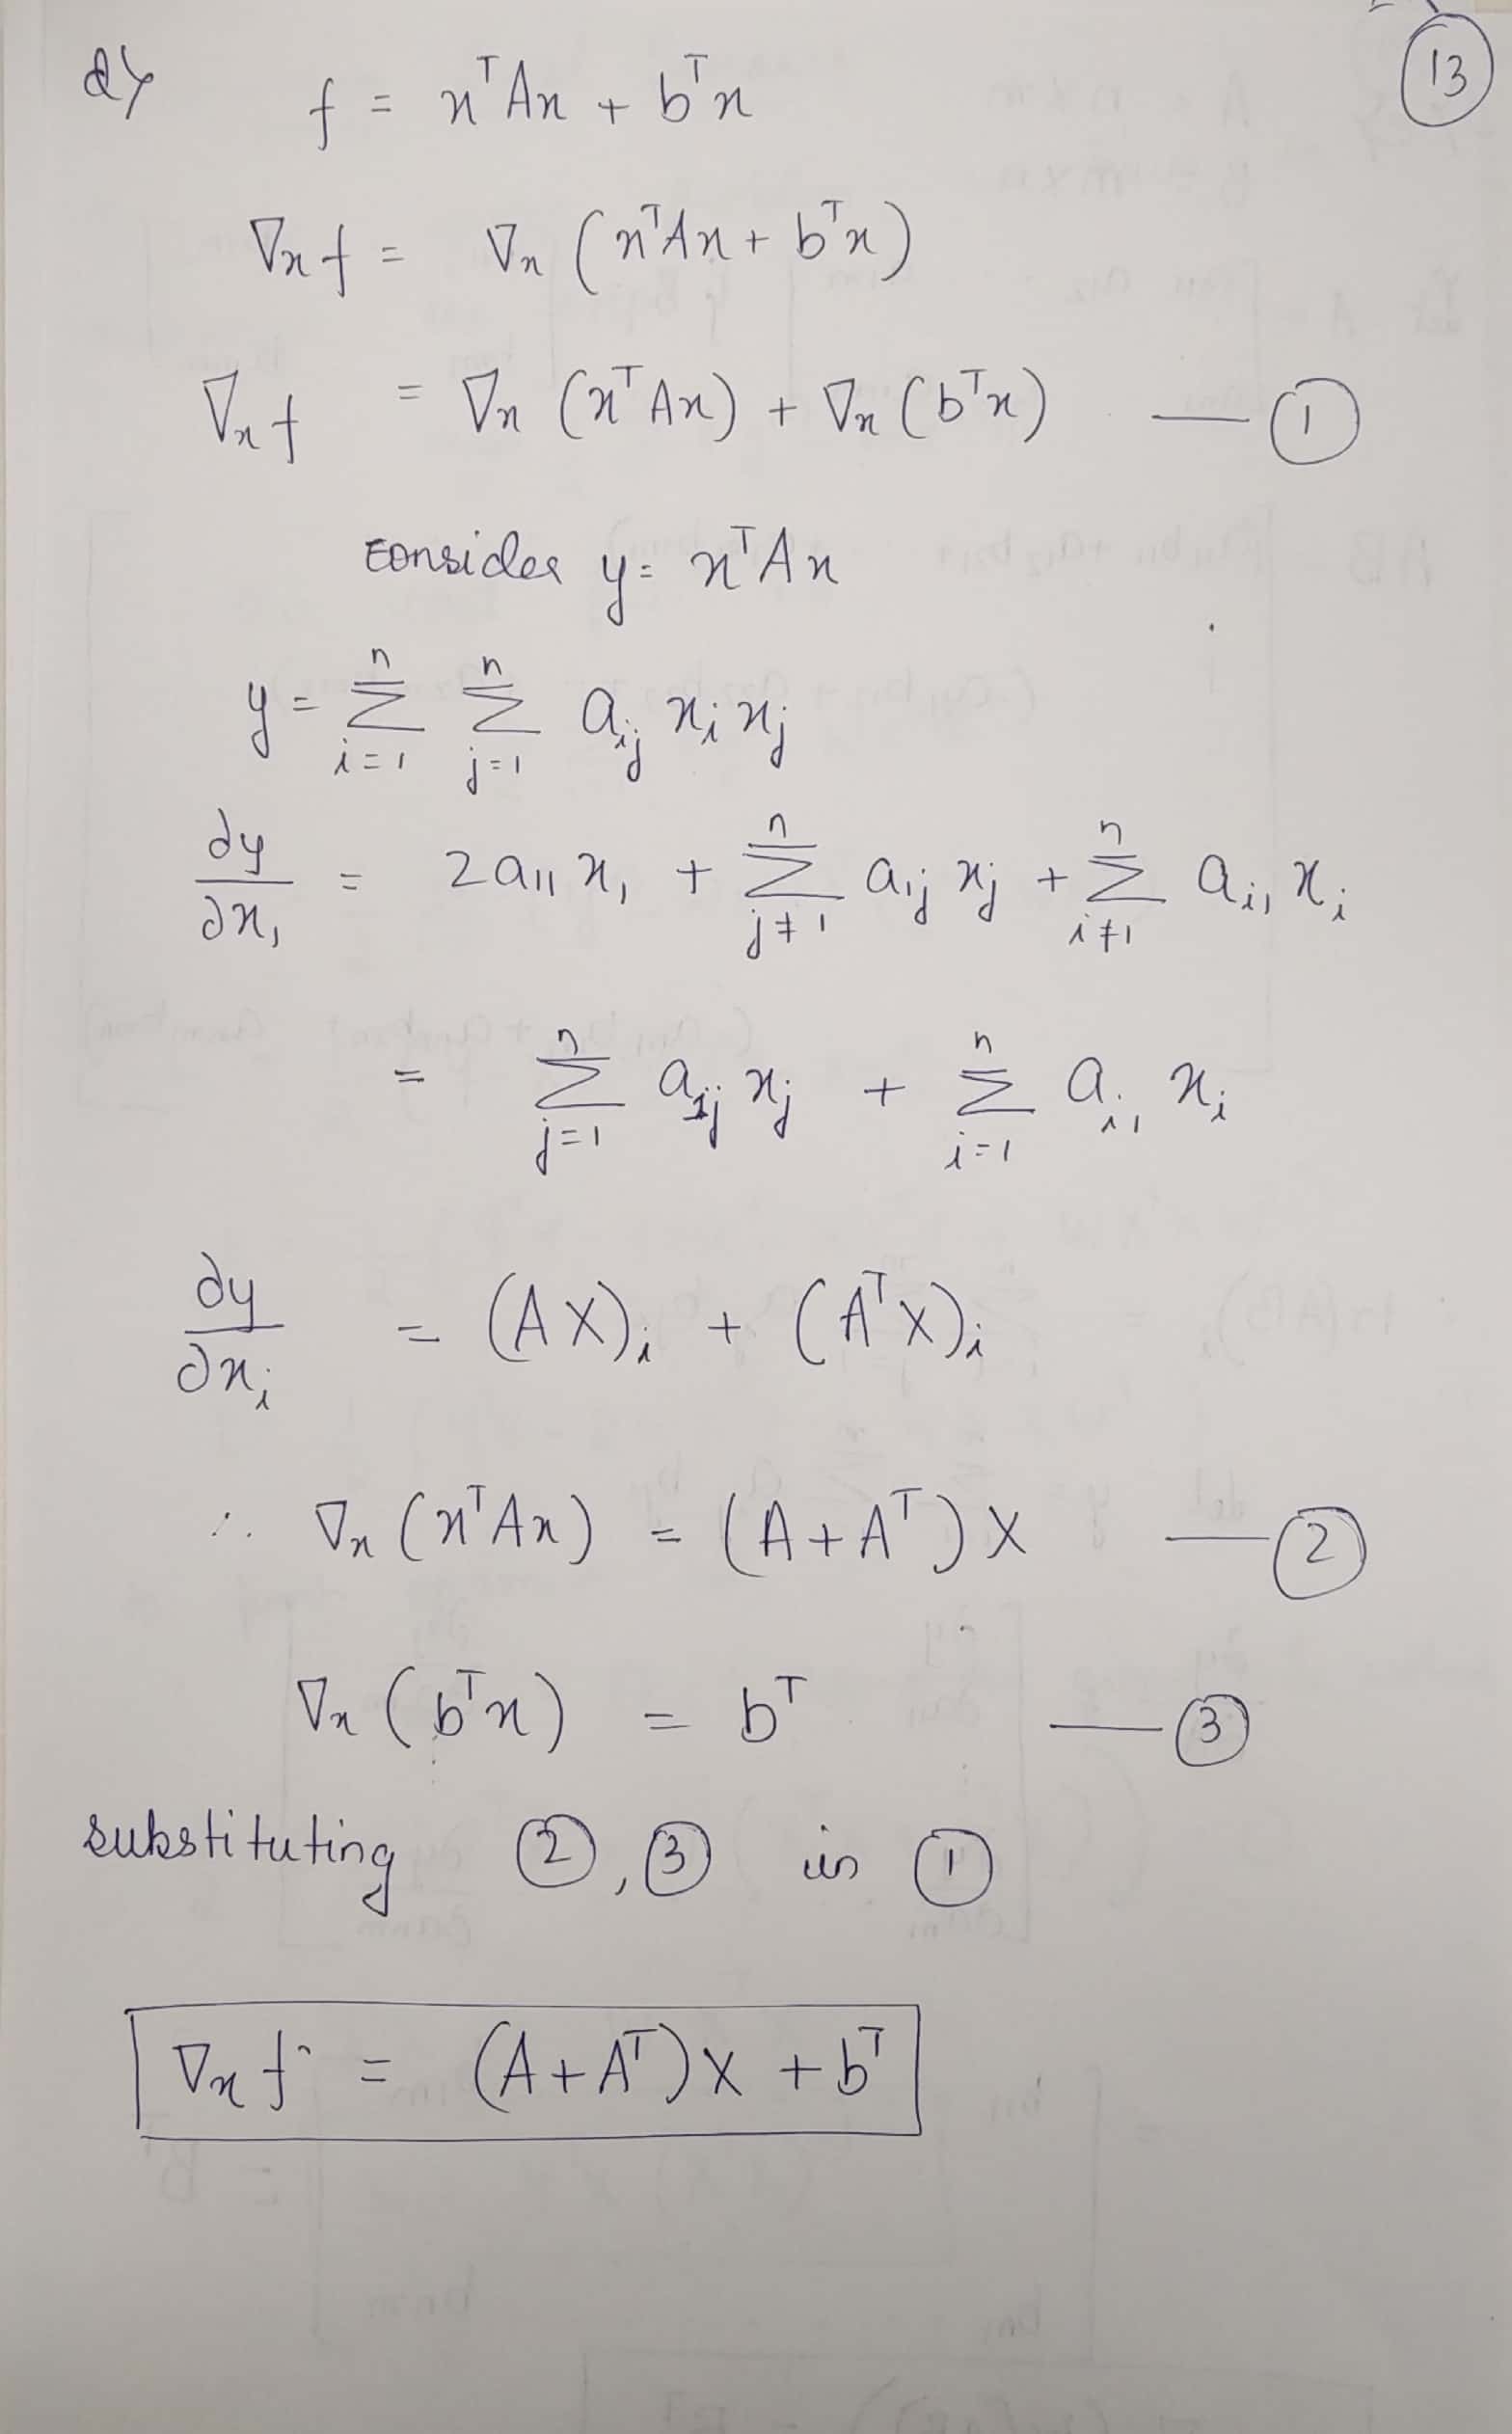 13
d)
f = xᵀAx + bᵀx
∇ₓf = ∇ₓ (xᵀAx + bᵀx)
∇ₓf = ∇ₓ (xᵀAx) + ∇ₓ (bᵀx) — ①
Consider y = xᵀAx
y = Σᵢ₌₁ⁿ Σⱼ₌₁ⁿ aᵢⱼ xᵢ xⱼ
∂y/∂x₁ = 2a₁₁ x₁ + Σⱼ≠₁ⁿ a₁ⱼ xⱼ + Σᵢ≠₁ⁿ aᵢ₁ xᵢ
= Σⱼ₌₁ⁿ a₁ⱼ xⱼ + Σᵢ₌₁ⁿ aᵢ₁ xᵢ
∂y/∂xᵢ = (AX)ᵢ + (AᵀX)ᵢ
∴ ∇ₓ (xᵀAx) = (A + Aᵀ) X — ②
∇ₓ (bᵀx) = bᵀ — ③
substituting ②, ③ in ①
∇ₓf = (A + Aᵀ) X + bᵀ